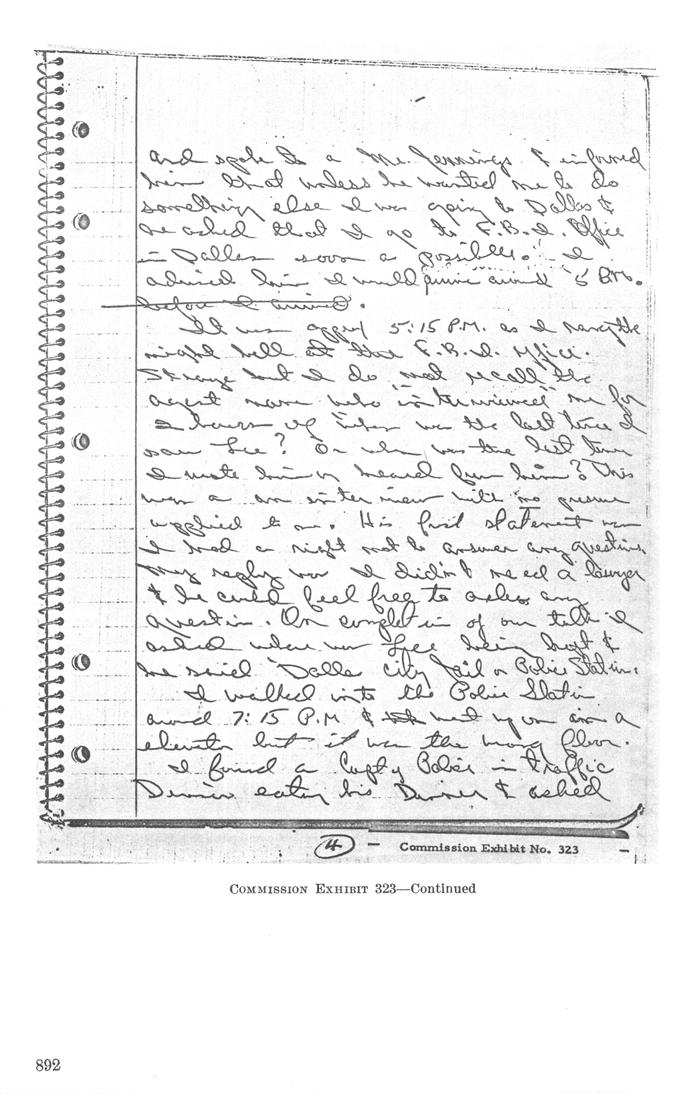 and spoke to a Mr. Jennings & informed
him that unless he wanted me to do
something else I was going to Dallas &
he asked that I go to F.B.I. Office
in Dallas soon a possible. I
advised him I would arrive around 5 P.M.
before I arrived.
It was approx 5:15 P.M. as I rang the
night bell at the F.B.I. office.
Strange but I do not recall the
agent name who "interviewed" me for
2 hours of when was the last time I
saw Lee? Or when was the last time
I wrote him or heard from him? This
was a an interview with no pressure
applied to me. His first statement was
I had a right not to answer any questions
my reply was I didn't need a lawyer
& he could feel free to ask any
question. On completion of our talk I
asked where was Lee being kept &
he said Dallas City Jail or Police Station.
I walked into the Police Station
around 7:15 P.M & went up on a
elevator but it was the wrong floor.
I found a Capt of Police in traffic
Division eating his Dinner & asked
4
Commission Exhibit No. 323
COMMISSION EXHIBIT 323—Continued
892